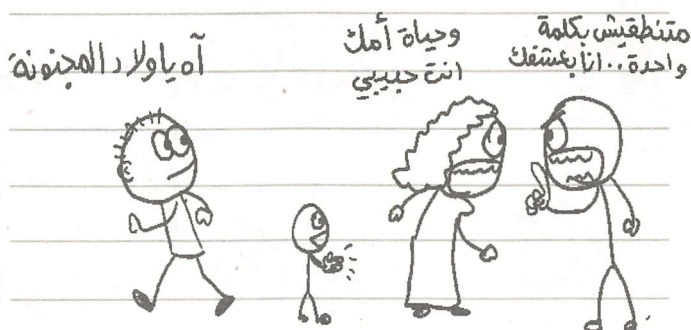 متنطقيش بكلمة
واحدة.. انا بعشقك
وحياة أمك
انت حبيبي
آه يا ولاد المجنونة